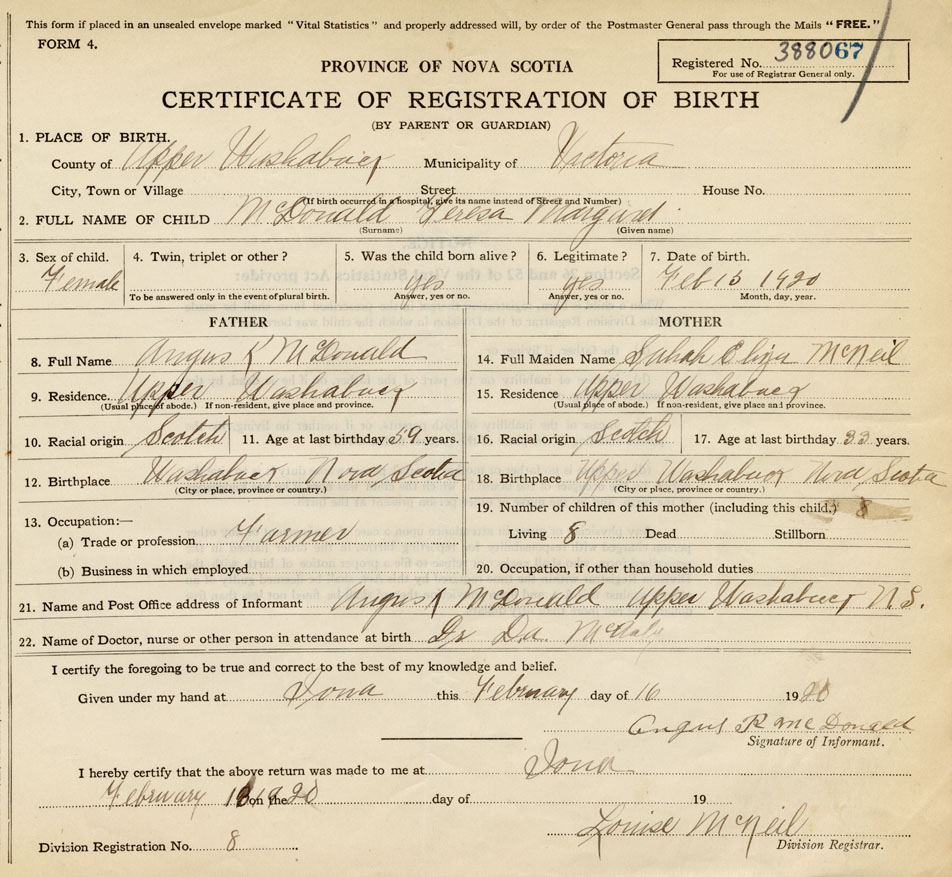 This form if placed in an unsealed envelope marked "Vital Statistics" and properly addressed will, by order of the Postmaster General pass through the Mails "FREE."
FORM 4.
Registered No. 388067
For use of Registrar General only.
PROVINCE OF NOVA SCOTIA
CERTIFICATE OF REGISTRATION OF BIRTH
(BY PARENT OR GUARDIAN)
1. PLACE OF BIRTH.
County of Upper Washabuck Municipality of Victoria
City, Town or Village Street House No.
(If birth occurred in a hospital, give its name instead of Street and Number)
2. FULL NAME OF CHILD McDonald Teresa Margaret
(Surname) (Given name)
3. Sex of child. 4. Twin, triplet or other? 5. Was the child born alive? 6. Legitimate? 7. Date of birth.
Female yes yes Feb 15 1920
To be answered only in the event of plural birth. Answer, yes or no. Answer, yes or no. Month, day, year.
FATHER
8. Full Name Angus R McDonald
9. Residence. Upper Washabuck
(Usual place of abode.) If non-resident, give place and province.
10. Racial origin Scotch 11. Age at last birthday 39 years.
12. Birthplace Washabuck Nova Scotia
(City or place, province or country.)
13. Occupation:—
(a) Trade or profession Farmer
(b) Business in which employed
MOTHER
14. Full Maiden Name Sarah Eliza McNeil
15. Residence Upper Washabuck
(Usual place of abode.) If non-resident, give place and province.
16. Racial origin Scotch 17. Age at last birthday 33 years.
18. Birthplace Upper Washabuck Nova Scotia
(City or place, province or country.)
19. Number of children of this mother (including this child.) 8
Living 8 Dead Stillborn
20. Occupation, if other than household duties
21. Name and Post Office address of Informant Angus R McDonald Upper Washabuck N.S.
22. Name of Doctor, nurse or other person in attendance at birth Dr D.A.
I certify the foregoing to be true and correct to the best of my knowledge and belief.
Given under my hand at Iona this February day of 16 1920
Angus R McDonald
Signature of Informant.
I hereby certify that the above return was made to me at Iona
February on the 1920 day of 19
Louise McNeil
Division Registration No. 8 Division Registrar.